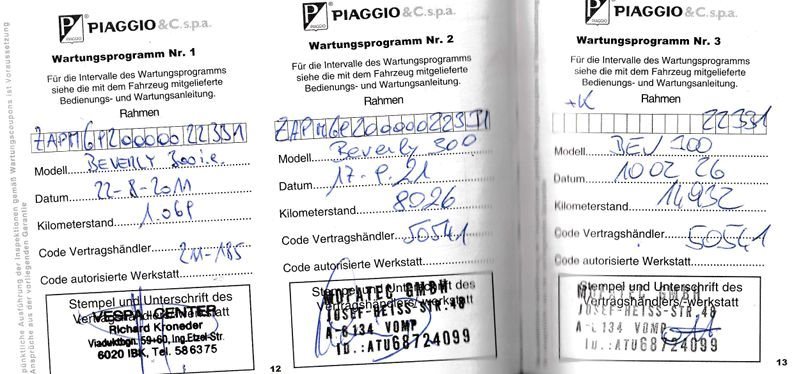 pünktliche Ausführung der Inspektionen gemäß Wartungscoupons ist Voraussetzung
Ansprüche aus der vorliegenden Garantie
PIAGGIO & C. s.p.a.
Wartungsprogramm Nr. 1
Für die Intervalle des Wartungsprogramms
siehe die mit dem Fahrzeug mitgelieferte
Bedienungs- und Wartungsanleitung.
Rahmen
ZAPM6920000022331
Modell BEVERLY 300 i.e.
Datum 22-8-2011
Kilometerstand 1.069
Code Vertragshändler 211-185
Code autorisierte Werkstatt
Stempel und Unterschrift des
Vertragshändlers/-werkstatt
VESPA CENTER
Richard Kroneder
Viaduktbgn. 59+60, Ing.Etzel-Str.
6020 IBK, Tel. 586375
PIAGGIO & C. s.p.a.
Wartungsprogramm Nr. 2
Für die Intervalle des Wartungsprogramms
siehe die mit dem Fahrzeug mitgelieferte
Bedienungs- und Wartungsanleitung.
Rahmen
Modell Beverly 300
Datum 17.9.21
Kilometerstand 8026
Code Vertragshändler 50541
Code autorisierte Werkstatt
Stempel und Unterschrift des
Vertragshändlers/-werkstatt
MOPATEC GMBH
JOSEF-HEISS-STR.48
A-6134 VOMP
ID.:ATU68724099
12
PIAGGIO & C. s.p.a.
Wartungsprogramm Nr. 3
Für die Intervalle des Wartungsprogramms
siehe die mit dem Fahrzeug mitgelieferte
Bedienungs- und Wartungsanleitung.
+K
Rahmen
22331
Modell BEV 300
Datum 10 02 26
Kilometerstand 14932
Code Vertragshändler 50541
Code autorisierte Werkstatt
Stempel und Unterschrift des
Vertragshändlers/-werkstatt
MOPATEC GMBH
JOSEF-HEISS-STR.48
A-6134 VOMP
ID.:ATU68724099
13